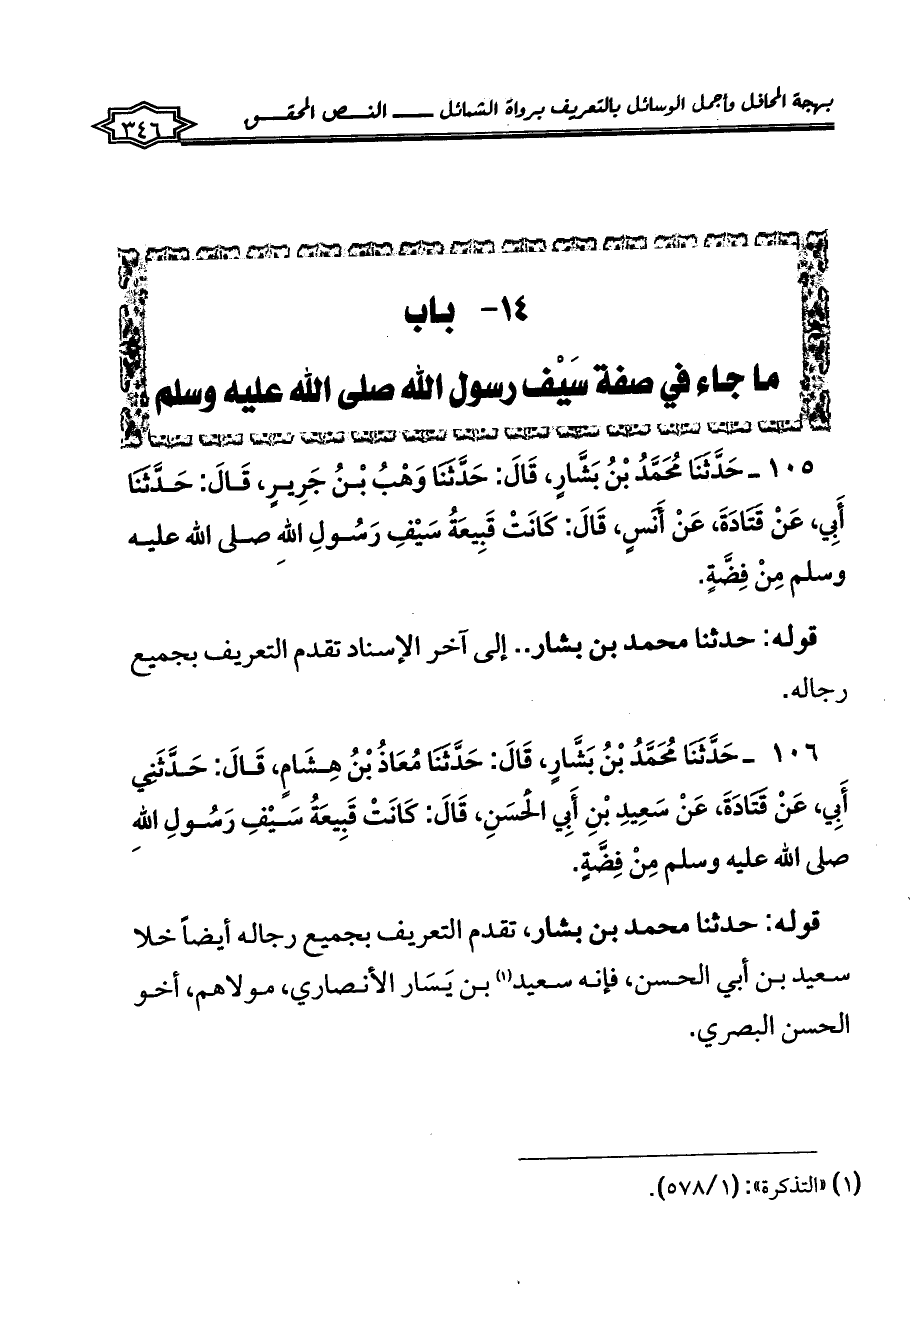 بهجة المحافل وأجمل الوسائل بالتعريف برواة الشمائل ـــ النص المحقق
٣٤٦
١٤- باب
ما جاء في صفة سَيْف رسول الله صلى الله عليه وسلم
١٠٥ ـ حَدَّثَنَا مُحَمَّدُ بْنُ بَشَّارٍ، قَالَ: حَدَّثَنَا وَهْبُ بْنُ جَرِيرٍ، قَالَ: حَدَّثَنَا
أَبِي، عَنْ قَتَادَةَ، عَنْ أَنَسٍ، قَالَ: كَانَتْ قَبِيعَةُ سَيْفِ رَسُولِ اللهِ صلى الله عليه
وسلم مِنْ فِضَّةٍ.
قوله: حدثنا محمد بن بشار.. إلى آخر الإسناد تقدم التعريف بجميع
رجاله.
١٠٦ ـ حَدَّثَنَا مُحَمَّدُ بْنُ بَشَّارٍ، قَالَ: حَدَّثَنَا مُعَاذُ بْنُ هِشَامٍ، قَالَ: حَدَّثَنِي
أَبِي، عَنْ قَتَادَةَ، عَنْ سَعِيدِ بْنِ أَبِي الْحَسَنِ، قَالَ: كَانَتْ قَبِيعَةُ سَيْفِ رَسُولِ اللهِ
صلى الله عليه وسلم مِنْ فِضَّةٍ.
قوله: حدثنا محمد بن بشار، تقدم التعريف بجميع رجاله أيضاً خلا
سعيد بن أبي الحسن، فإنه سعيد(١) بن يَسَار الأنصاري، مولاهم، أخو
الحسن البصري.
(١) «التذكرة»: (٥٧٨/١).